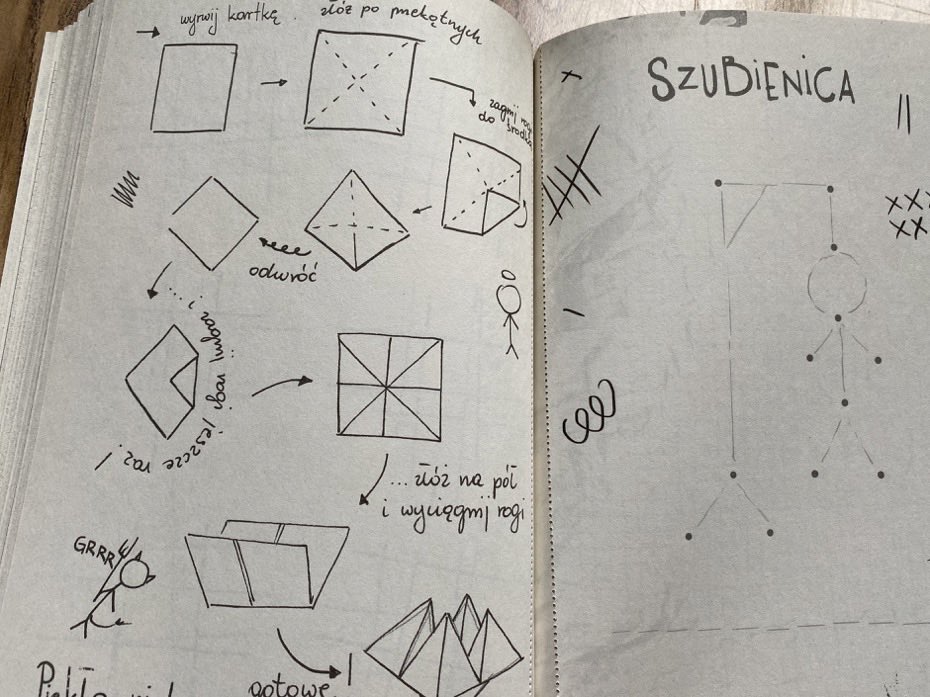 wyrwij kartkę.
złóż po przekątnych
zagnij rogi
do środka
odwróć
... i
zagnij rogi jeszcze raz!
... złóż na pół
i wyciągnij rogi
GRRR
Piekło
gotowe
SZUBIENICA